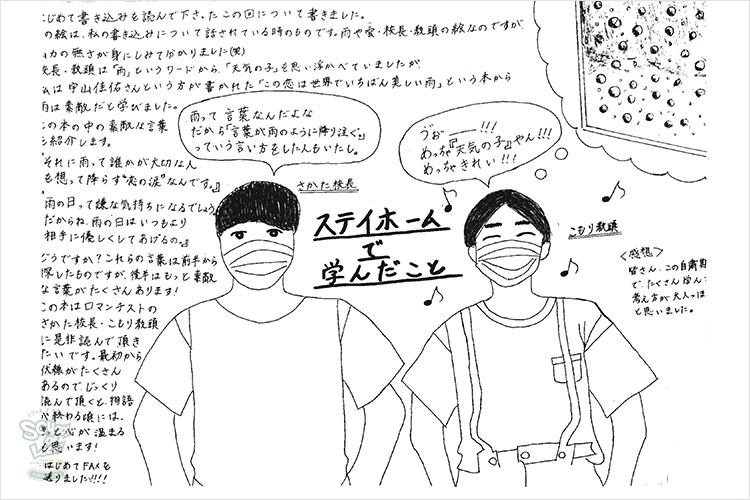 こじめて書き込みを読んで下さったこの回について書きました。
の絵は、私の書き込みについて話されている時のものです。雨や窓・校長・教頭の絵なのですが
カの無さが身にしみて分かりました(笑)
校長・教頭は「雨」というワードから、「天気の子」を思い浮かべていましたが
ムは宇山佳佑さんという方が書かれた「この恋は世界でいちばん美しい雨」という本から
雨は素敵だと学びました。
この本の中の素敵な言葉
を紹介します。
それに雨って誰かが大切な人
を想って降らす“恋の涙”なんです。』
雨の日って嫌な気持ちになるでしょう
だからね、雨の日はいつもより
相手に優しくしてあげるの。』
どうですか?これらの言葉は前半から
探したものですが、後半はもっと素敵
な言葉がたくさんあります!
この本はロマンチストの
さかた校長・こもり教頭
に是非読んで頂き
たいです。最初から
伏線がたくさん
あるので、じっくり
読んで頂くと、物語
が終わる頃には、
と心が温まる
と思います!
はじめてFAXを
送りました!!!!
雨って言葉なんだよな
だから「言葉が雨のように降り注ぐ。」
っていう言い方をしたんもいたし。
さかた校長
うぉ━━!!!
めっちゃ『天気の子』やん!!!
めっちゃきれい!!!
こもり教頭
ステイホーム
で
学んだこと
<感想>
皆さん、この自粛期
で、たくさん学ん
考え方が大人っぽ
と思いました。